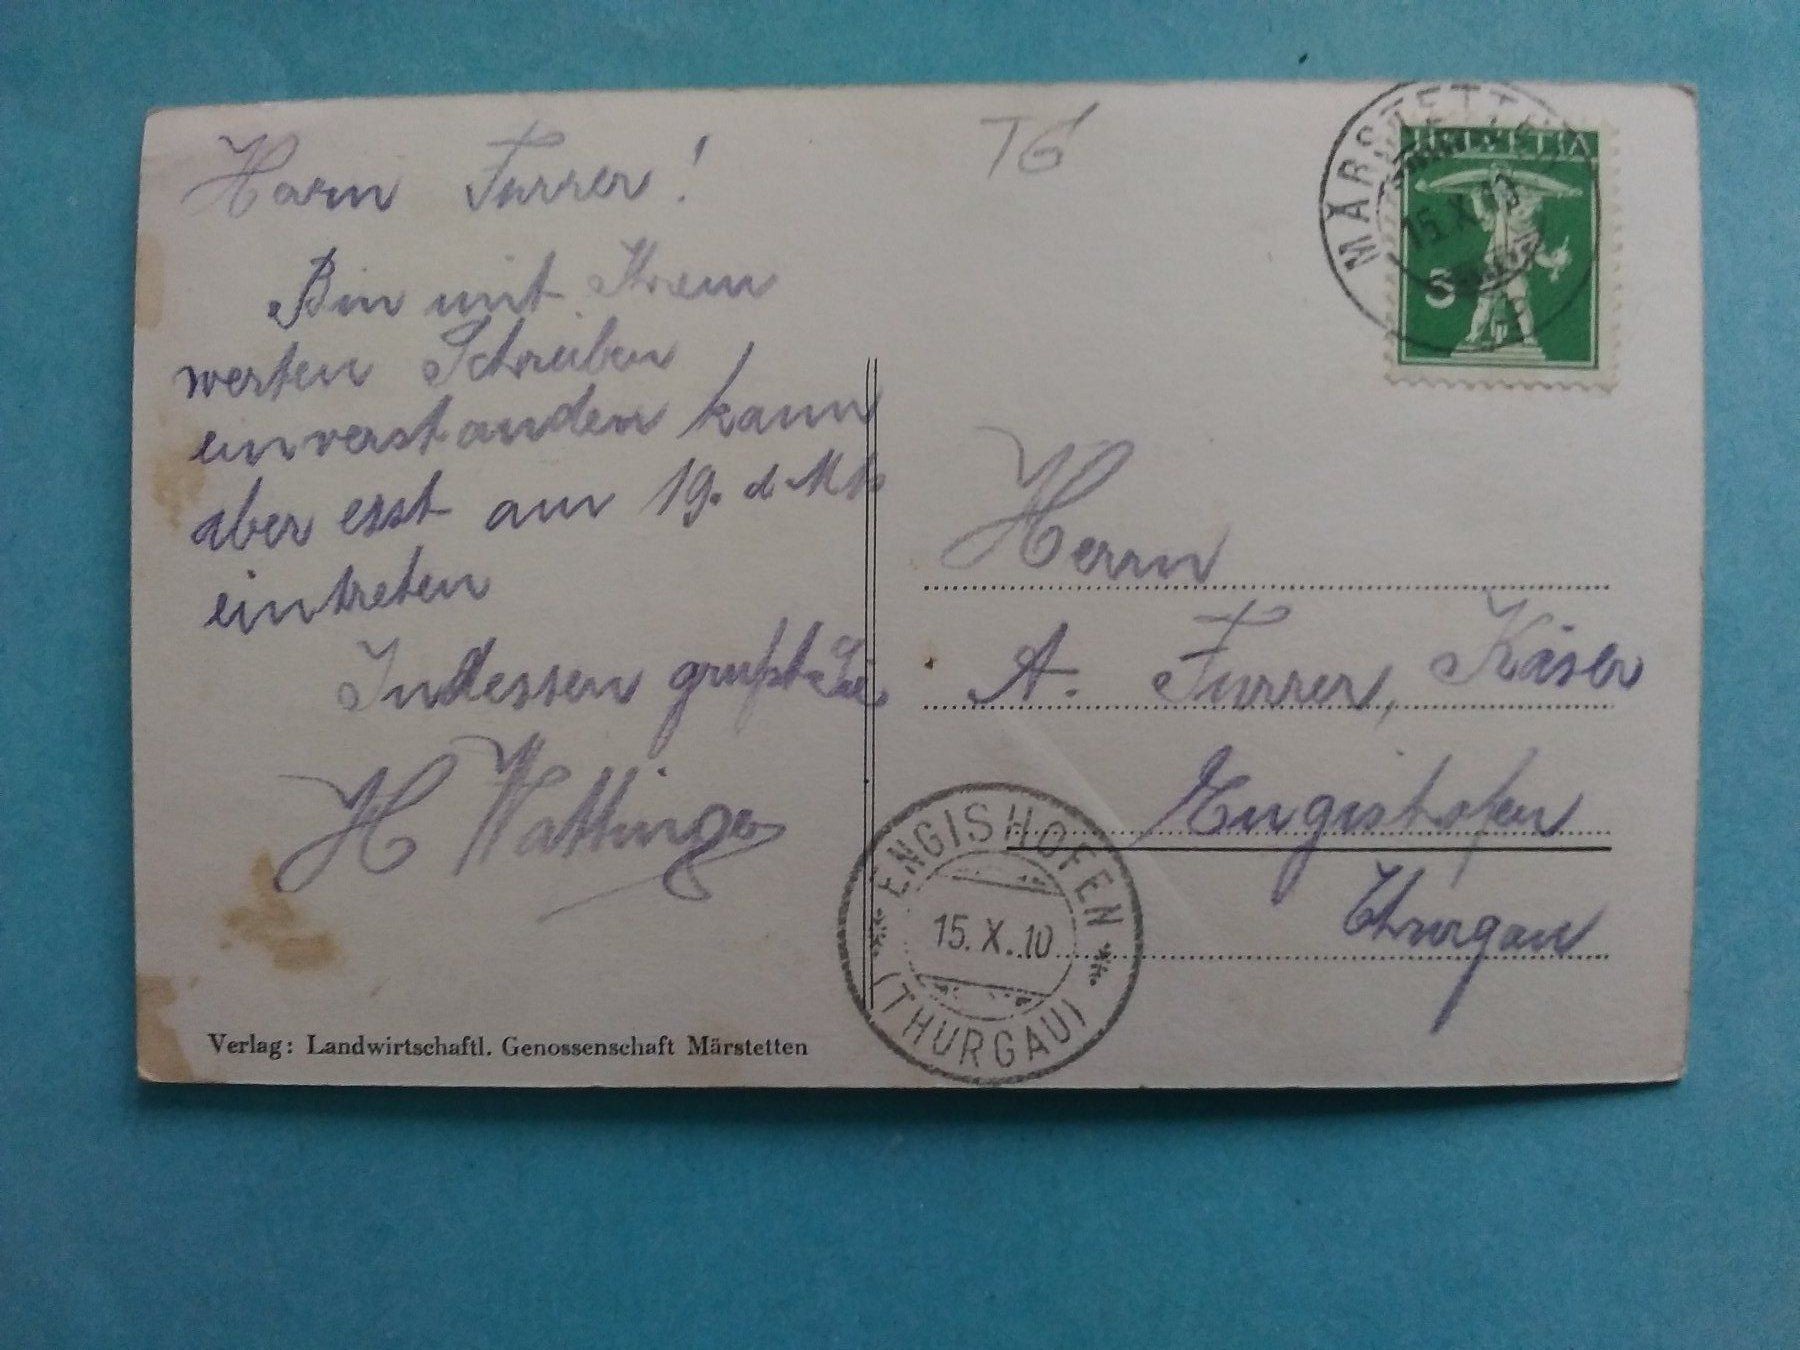 Herrn Furrer!
Bin mit Ihrem
werten Schreiben
einverstanden kann
aber erst am 19. d. Mts
eintreten
Indessen grüsst Sie
H Wattinger
Verlag: Landwirtschaftl. Genossenschaft Märstetten
TG
MÄRSTETTEN
15.X.10
HELVETIA
5
Herrn
A. Furrer, Käser
Engishofen
Thurgau
ENGISHOFEN
15.X.10
(THURGAU)